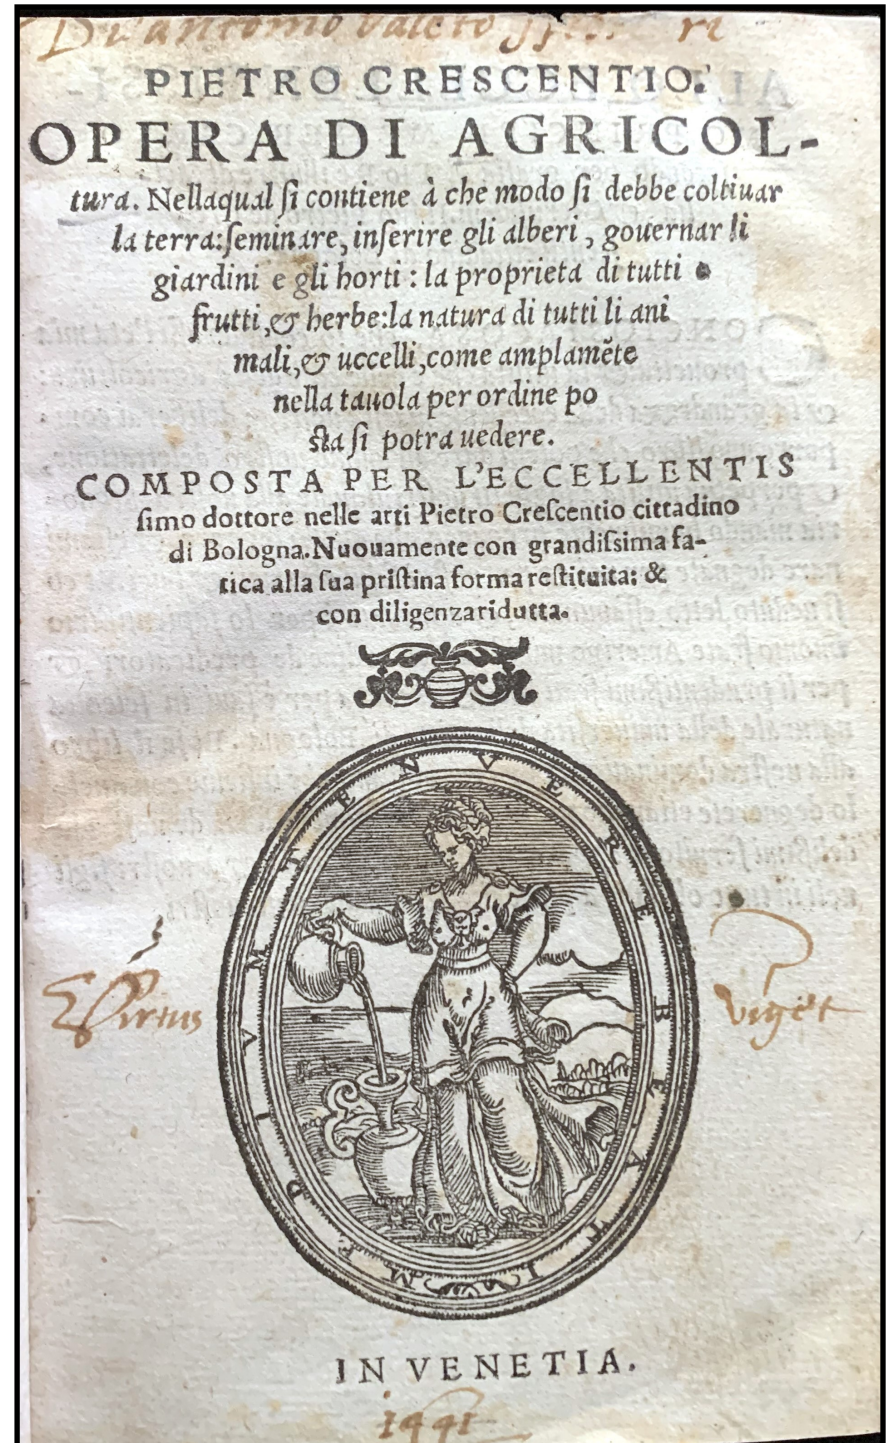 Di antonio
PIETRO CRESCENTIO.
OPERA DI AGRICOL-
tura. Nellaqual ſi contiene à che modo ſi debbe coltiuar
la terra:ſeminare, inſerire gli alberi, gouernar li
giardini e gli horti: la proprieta di tutti
frutti,& herbe:la natura di tutti li ani
mali,& uccelli,come amplamẽte
nella tauola per ordine po
ſta ſi potra uedere.
COMPOSTA PER L'ECCELLENTIS
ſimo dottore nelle arti Pietro Creſcentio cittadino
di Bologna.Nuouamente con grandiſsima fa-
tica alla ſua priſtina forma reſtituita: &
con diligenza ridutta.
DIVMTENVEREBEATIM
Virtus viget
IN VENETIA.